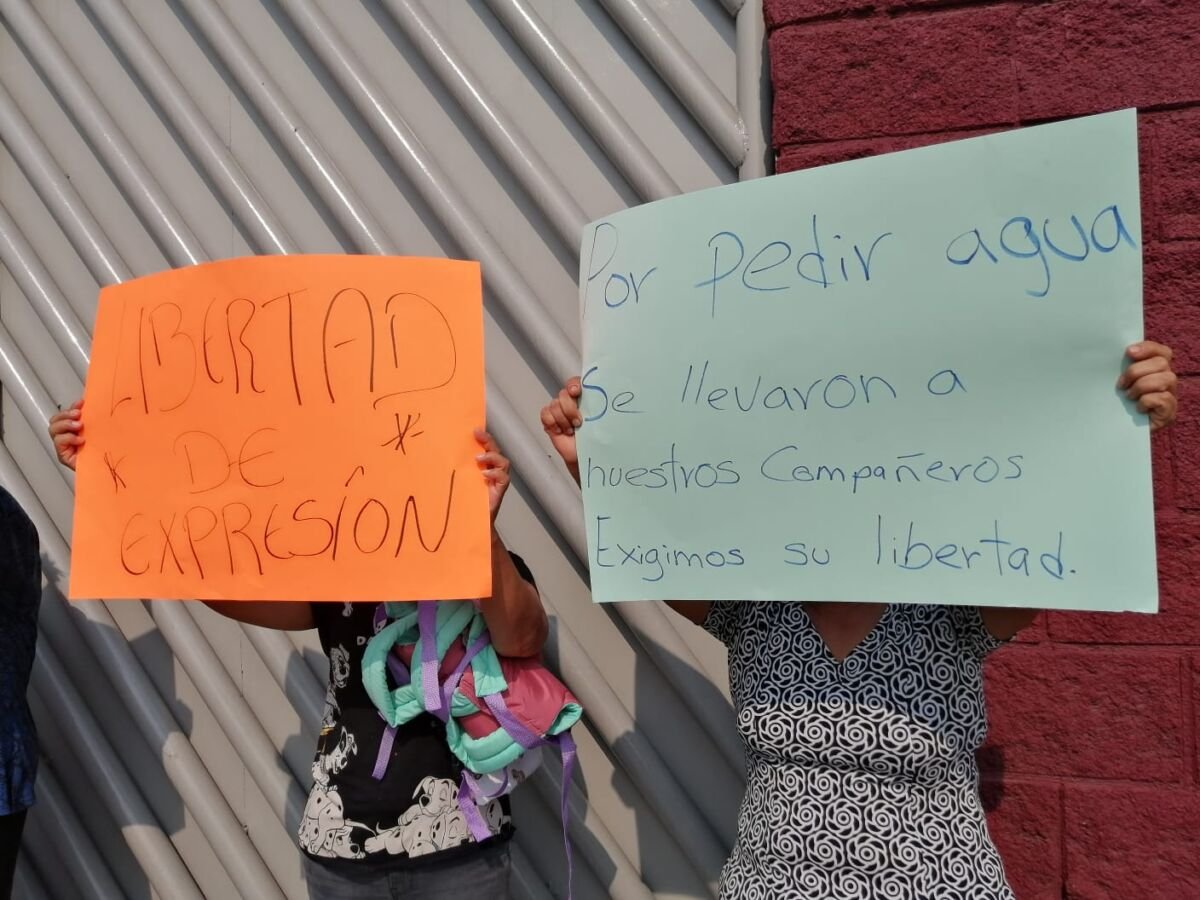 LIBERTAD
* DE *
EXPRESIÓN
Por pedir agua
Se llevaron a
nuestros Compañeros
Exigimos su libertad.